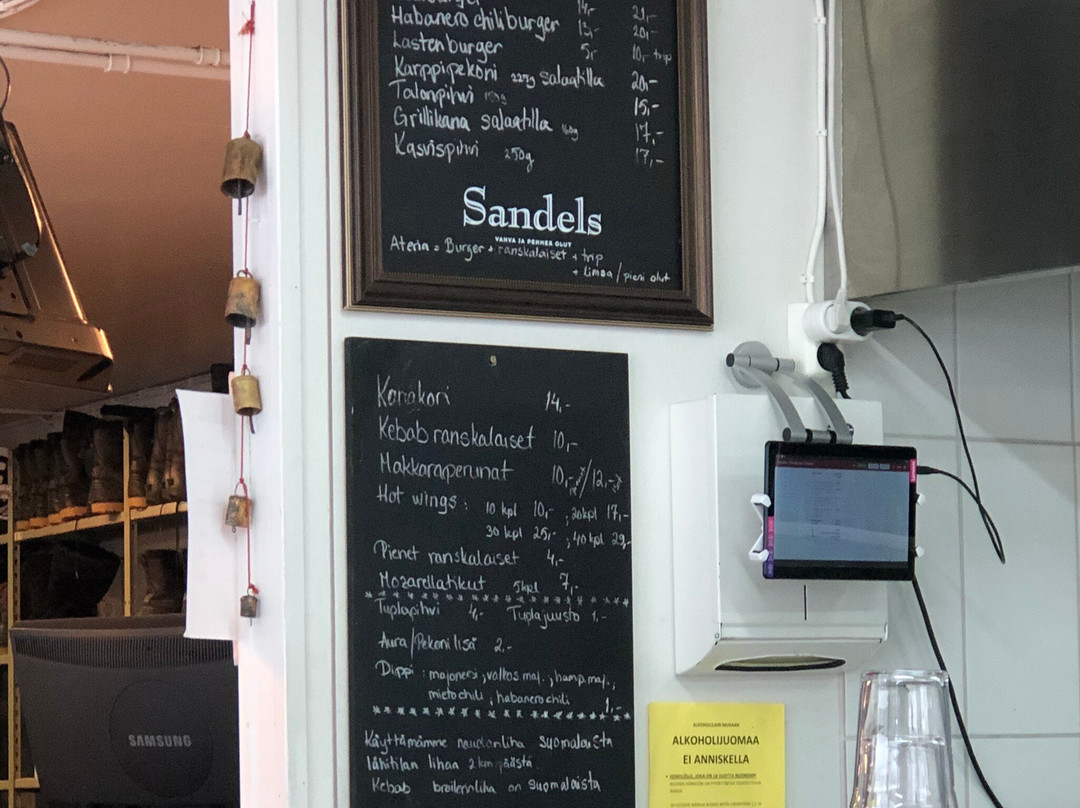 Habanero chiliburger 15,- 20,-
Lastenburger 5,- 10,- trip
Karppipekoni 225g salaatilla 20,-
Talonpihvi 15,-
Grillikana salaatilla 160g 17,-
Kasvispihvi 250g 17,-
Sandels
VAHVA JA PEHMEÄ OLUT
Ateria = Burger + ranskalaiset + trip
+ limsa / pieni olut
Kanakori 14,-
Kebab ranskalaiset 10,-
Makkaraperunat 10,- /12,-
Hot wings : 10 kpl 10,- ; 20kpl 17,-
30 kpl 25,- ; 40 kpl 29,-
Pienet ranskalaiset 4,-
Mozarellatikut 5kpl 7,-
Tuplapihvi 4,- Tuplajuusto 1,-
Aura/Pekoni lisä 2,-
Dippi : majoneesi, valkos.maj., hamp.maj.,
mieto chili, habanero chili 1,-
Käyttämämme naudanliha suomalaista
lähitilan lihaa 2 km päästä
Kebab broileriliha on suomalaista
SAMSUNG
ALKOHOLILAIN MUKAAN
ALKOHOLIJUOMAA
EI ANNISKELLA